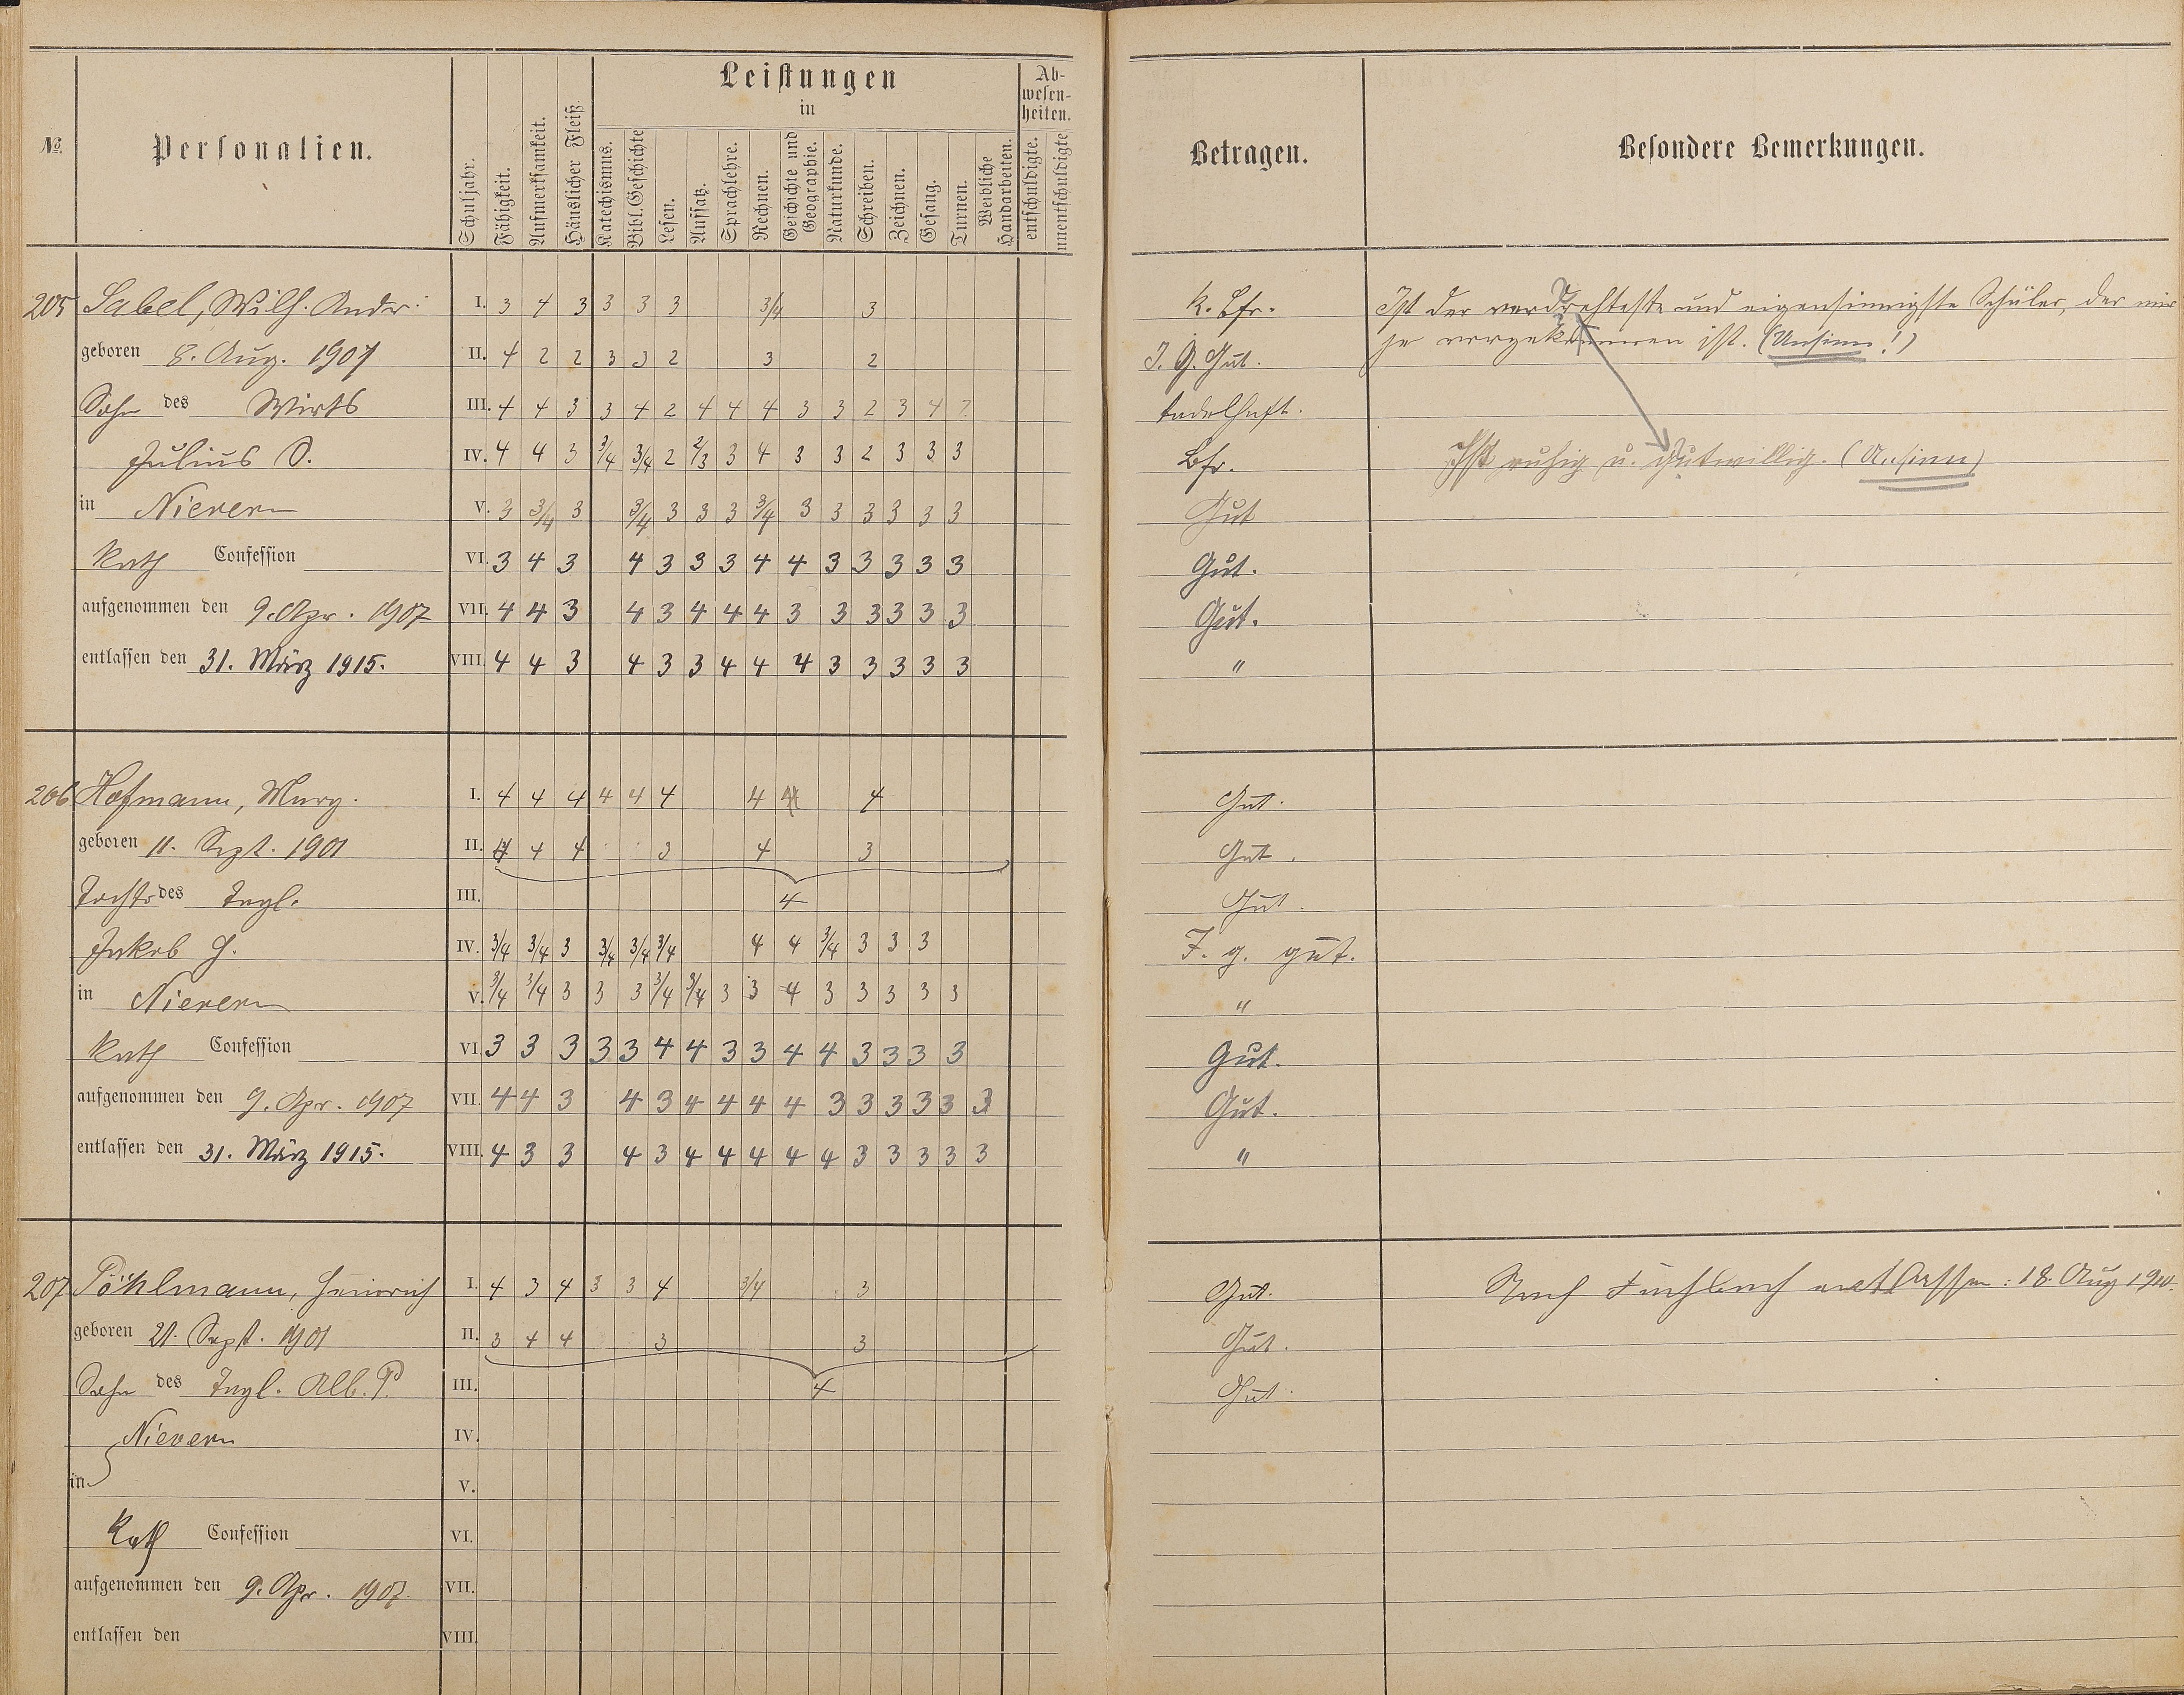 №
Personalien.
Schuljahr.
Fähigkeit.
Aufmerksamkeit.
Häuslicher Fleiß.
Leistungen
in
Katechismus.
Bibl. Geschichte
Lesen.
Aufsatz.
Sprachlehre.
Rechnen.
Geschichte und Geographie.
Naturkunde.
Schreiben.
Zeichnen.
Gesang.
Turnen.
Weibliche Handarbeiten.
Ab-
wesen-
heiten.
entschuldigte.
unentschuldigte
Betragen.
Besondere Bemerkungen.
205 Sabel, Wilh. Andr. I. 3 4 3 3 3 3 3/4 3 K. Bfr. Ist der verdrehteste und eigensinnigste Schüler, der mir
geboren 8. Aug. 1907 II. 4 2 2 3 3 2 3 2 I. G. Gut. je vorgekommen ist. (Unsinn!)
Sohn des Wirts III. 4 4 3 3 4 2 4 4 4 3 3 2 3 4 tadelhaft.
Julius S. IV. 4 4 3 3/4 3/4 2 2/3 3 4 3 3 2 3 3 3 Bfr. Ist ruhig u. gutwillig. (Unsinn)
in Nievern V. 3 3/4 3 3/4 3 3 3 3/4 3 3 3 3 3 3 Gut
Kath Confession VI. 3 4 3 4 3 3 3 4 4 3 3 3 3 3 Gut.
aufgenommen den 9. Apr. 1907 VII. 4 4 3 4 3 4 4 4 3 3 3 3 3 3 Gut.
entlassen den 31. März 1915. VIII. 4 4 3 4 3 3 4 4 4 3 3 3 3 3 "
206 Hofmann, Marg. I. 4 4 4 4 4 4 4 4 4 Gut.
geboren 11. Sept. 1901 II. 4 4 4 3 4 3 Gut.
Tochter des Tagl. III. 4 Gut.
Jakob H. IV. 3/4 3/4 3 3/4 3/4 3/4 4 4 3/4 3 3 3 I. g. gut.
in Nievern V. 3/4 3/4 3 3 3 3/4 3/4 3 3 4 3 3 3 3 3 "
Kath Confession VI. 3 3 3 3 3 4 4 3 3 4 4 3 3 3 3 Gut.
aufgenommen den 9. Apr. 1907 VII. 4 4 3 4 3 4 4 4 4 3 3 3 3 3 3 Gut.
entlassen den 31. März 1915. VIII. 4 3 3 4 3 4 4 4 4 4 3 3 3 3 3 "
207 Pöhlmann, Heinrich I. 4 3 4 3 3 4 3/4 3 Gut. Nach Fachbach entlassen: 18. Aug 1910.
geboren 21. Sept. 1901 II. 3 4 4 3 3 Gut.
Sohn des Tagl. Alb. P. III. 4 Gut.
Nievern IV.
in V.
Kath Confession VI.
aufgenommen den 9. Apr. 1907. VII.
entlassen den VIII.